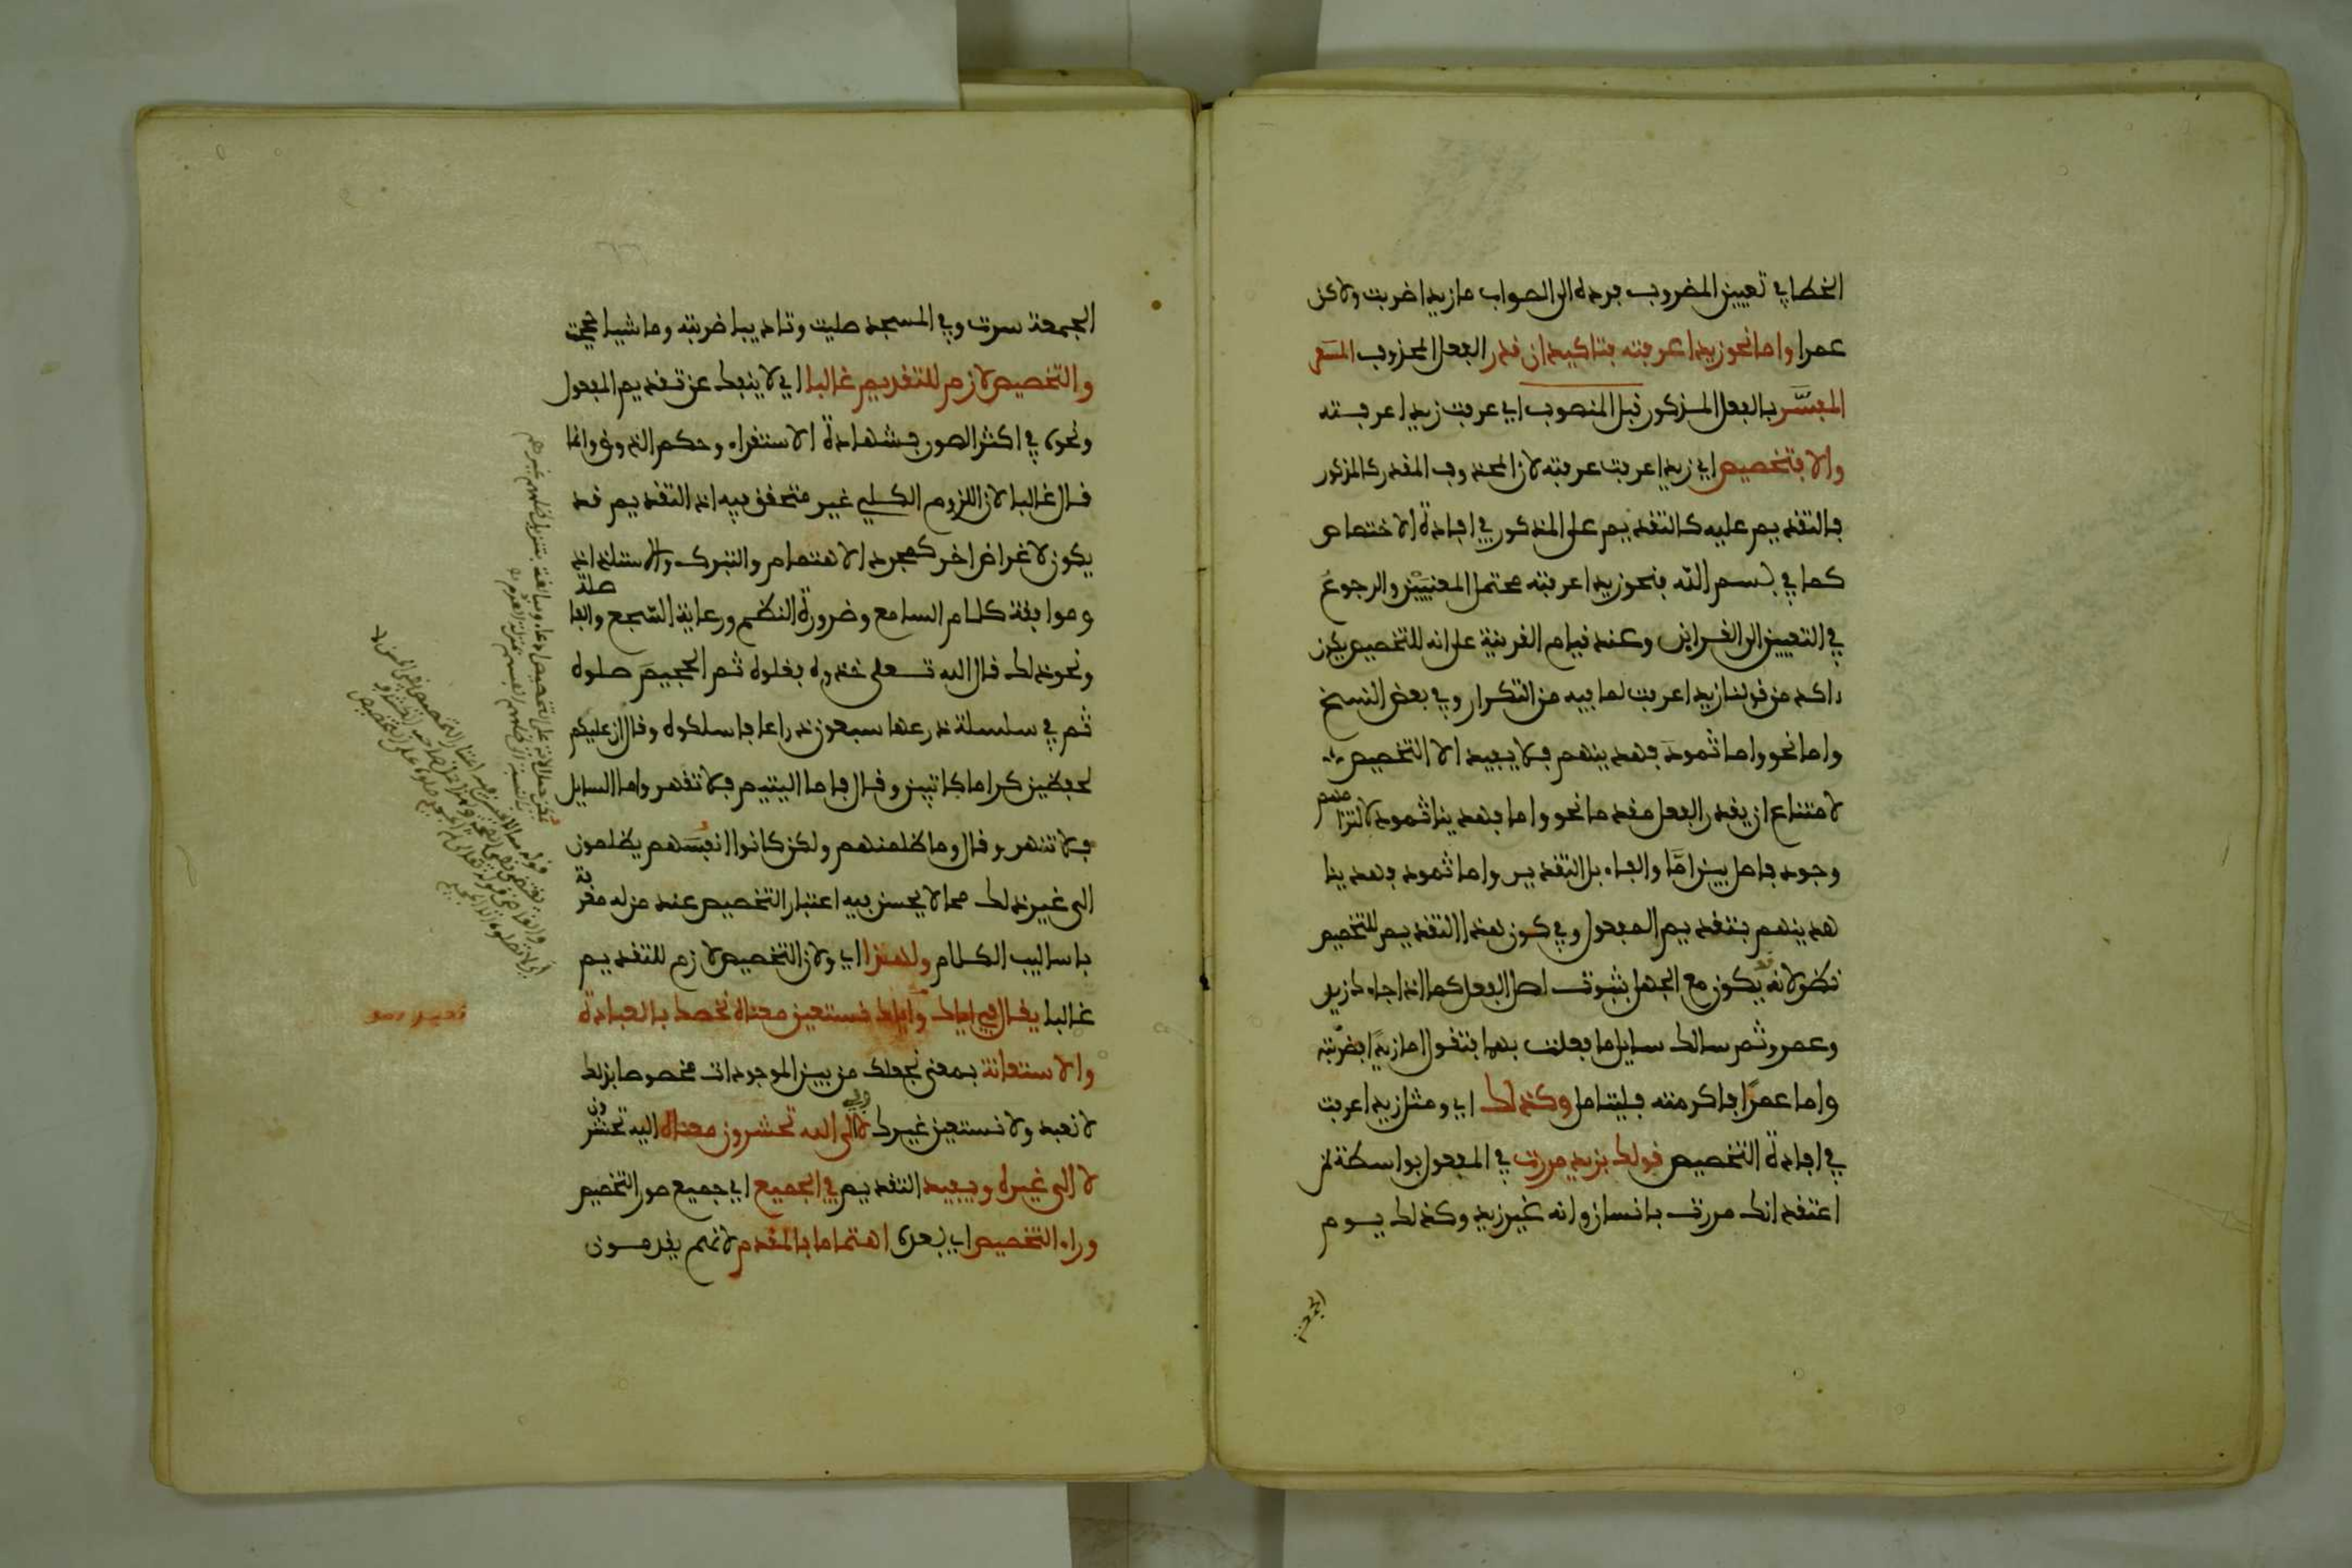 الخطا في تعيين المضروب فرده الى الصواب ما زيدا ضربت ولاكن
عمرا واما نحو زيدا عرفته فتاكيد ان قدر الفعل المحذوف المسفر
المفسَّر بالفعل المذكور قبل المنصوب اي عرفت زيدا عرفته
والا فتخصيص اي زيدا عرفت عرفته لان المحذوف المقدر كالمذكور
فالتقديم عليه كالتقديم على المذكور في افادة الاختصاص
كما في بسم الله فنحو زيدا عرفته محتمل المعنيين والرجوع
في التعيين الى القراين وعند قيام القرينة على انه للتخصيص يكون
اكد من قولنا زيدا عرفت لما فيه من التكرار وفي بعض النسخ
واما نحو واما ثمود فهديناهم فلا يفيد الا التخصيص
لامتناع ان يقدر الفعل مقدما نحو واما فهدينا ثمود لالتزامهم
وجود فاصل بين امَّا والفاء بل التقدير واما ثمود فهدينا
هديناهم بتقديم المفعول وفي كون هذا التقديم للتخصيص
نظر لانه قد يكون مع الجهل بثبوت اصل الفعل كما اذا جاءك زيد
وعمرو ثم سالك سايل ما فعلت بهما فتقول اما زيدا فضربته
واما عمرًا فاكرمته فليتامل وكذلك اي ومثل زيدا عرفت
في افادة التخصيص قولك بزيد مررت في المفعول بواسطة لمن
اعتقد انك مررت بانسان وانه غير زيد وكذلك يوم
الجمعة
الجمعة سرت وفي المسجد صليت وتاديبا ضربته وماشيا حججت
والتخصيص لازم للتقديم غالبا اي لا ينفك عن تقديم المفعول
ونحوه في اكثر الصور بشهادة الاستقراء وحكم الذوق وانما
قال غالبا لان اللزوم الكلي غير متحقق فيه اذ التقديم قد
يكون لاغراض اخر كمجرد الاهتمام والتبرك والاستلذاذ
وموافقة كلام السامع وضرورة النظم ورعاية السّجع والفاصلة
ونحو ذلك قال الله تعلى خذوه فغلوه ثم الجحيمَ صلوه
ثم في سلسلة ذرعها سبعون ذراعا فاسلكوه وقال ان عليكم
لحفظين كراما كاتبين وقال فاما اليتيم فلا تقهر واما السايل
فلا تنهر وقال وما ظلمنهم ولكن كانوا انفسَهم يظلمون
الى غير ذلك مما لا يحسن فيه اعتبار التخصيص عند من له معرفة
باساليب الكلام ولهذا اي ولان التخصيص لازم للتقديم
غالبا يقال في اياك واياك نستعين معناه نخصك بالعبادة
والاستعانة بمعنى نجعلك من بين الموجودات مخصوصا بذلك
لا نعبد ولا نستعين غيرك وفي لالى الله تحشرون معناه اليه تحشرون
لا الى غيره ويفيد التقديم في الجميع اي جميع صور التخصيص
وراء التخصيص اي بعده اهتماما بالمقدم لانهم يقدمون